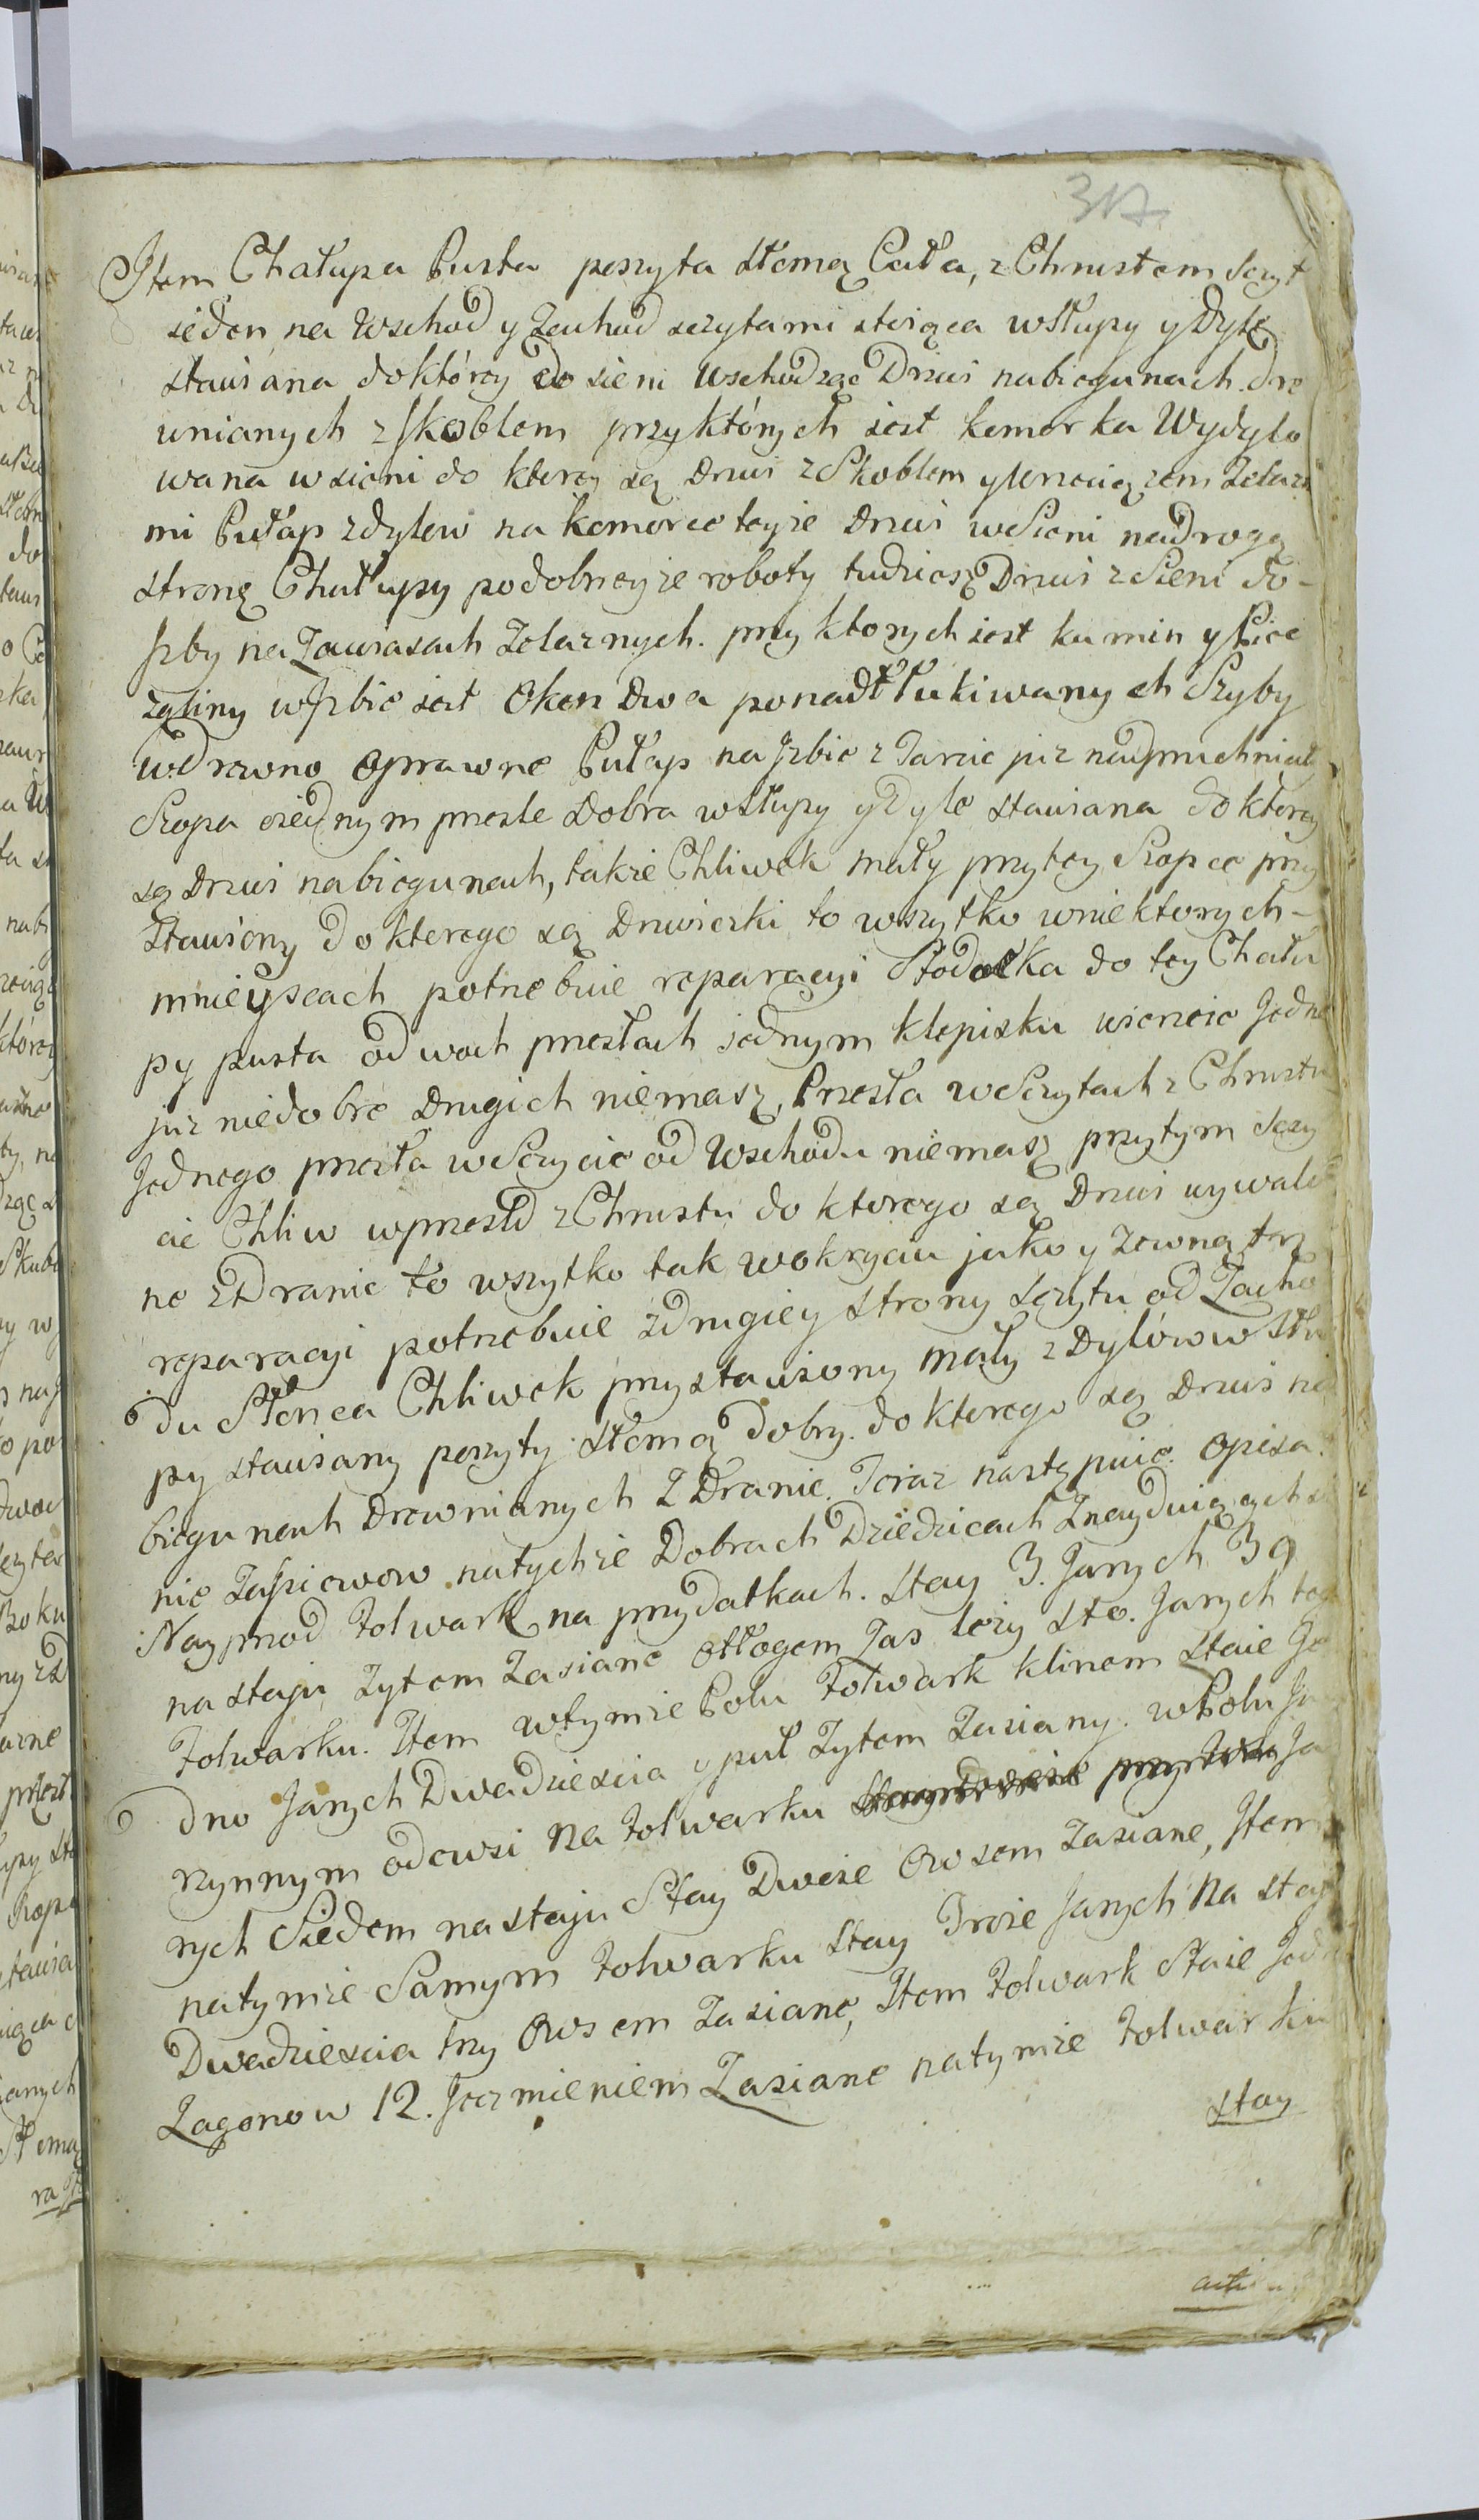 317.
Item Chałupa Pusta poszyta słomą Cała, z Chrustem sczyt
ieden na Wschod y Zachod sczytami stoiąca w Słupy y Dyle
stawiana do ktorey do sieni Wschodząc Drzwi na biegunach dre
wnianych z skoblem przy których iest komorka Wydylo
wana w sieni do ktorey są Drzwi z Skoblem y wrzeciązem Zelazn
mi Pułap z dylow na komorce teyże Drzwi w Sieni na Drogą
stronę Chałupy podobneyże roboty tudziesz Drzwi z Sieni do-
Jzby na Zawiasach Zelaznych. przy ktorych iest kumin y Piec
z gliny w Jzbie iest Oken Dwa ponadtłukiwanych Szyby
w Drewno Oprawne Pułap na Jzbie z Tarcic już nadpruchniały
Szopa o iednym prześle Dobra w Słupy y Dyle stawiana do ktorey
są Drzwi na biegunach, także Chliwek mały przy tey Szopce przy
stawiony do ktorego są Drzwiczki to wszytko w niektorych-
mnieyscach potrzebuie reparacyi Stodołka do tey Chału
py pusta o dwoch przesłach iednym klepisku wierzeie Jedne
już niedobre Drugich niemasz, Przesła w Sczytach z Chrustu
Jednego przesła w Sczycie od Wschodu niemasz przy tym sczy
cie Chliw w przesło z Chrustu do ktorego są Drzwi wywalo
ne z Dranic to wszytko tak w okryciu jako y Zewnątrz
reparacyi potrzebuie z drugiey strony sczytu od Zacho
du Słonca Chliwek przystawiony mały z Dylów w Słu
py stawiany poszyty słomą Dobry. do ktorego są Drzwi na
biegunach Drewnianych Z Dranic. Teraz następuie. Opisa
nie Zasiewow na tychże Dobrach Dziedzicach Znayduiących si
Nayprzod Folwark na przydatkach. stay 3. Jarych 39
na staju Zytem Zasiane Odłogem Zas leży sto. Jarych teg
Folwarku. Item w tymże Polu Folwark klinem staie Je
dno Jarych Dwadziescia y puł Zytem Zasiany. w Polu Ja
rzynnym od wsi na Folwarku Ja
rych Siedem na staju Stay Dwoie Owsem Zasiane, Item
na tymże Samym Folwarku stay Troie Jarych na stay
Dwadziescia trzy Owsem Zasiane, Item Folwark Staie Jedn
Zagonow 12. Jęczmieniem Zasiane na tymże Folwarku
stay